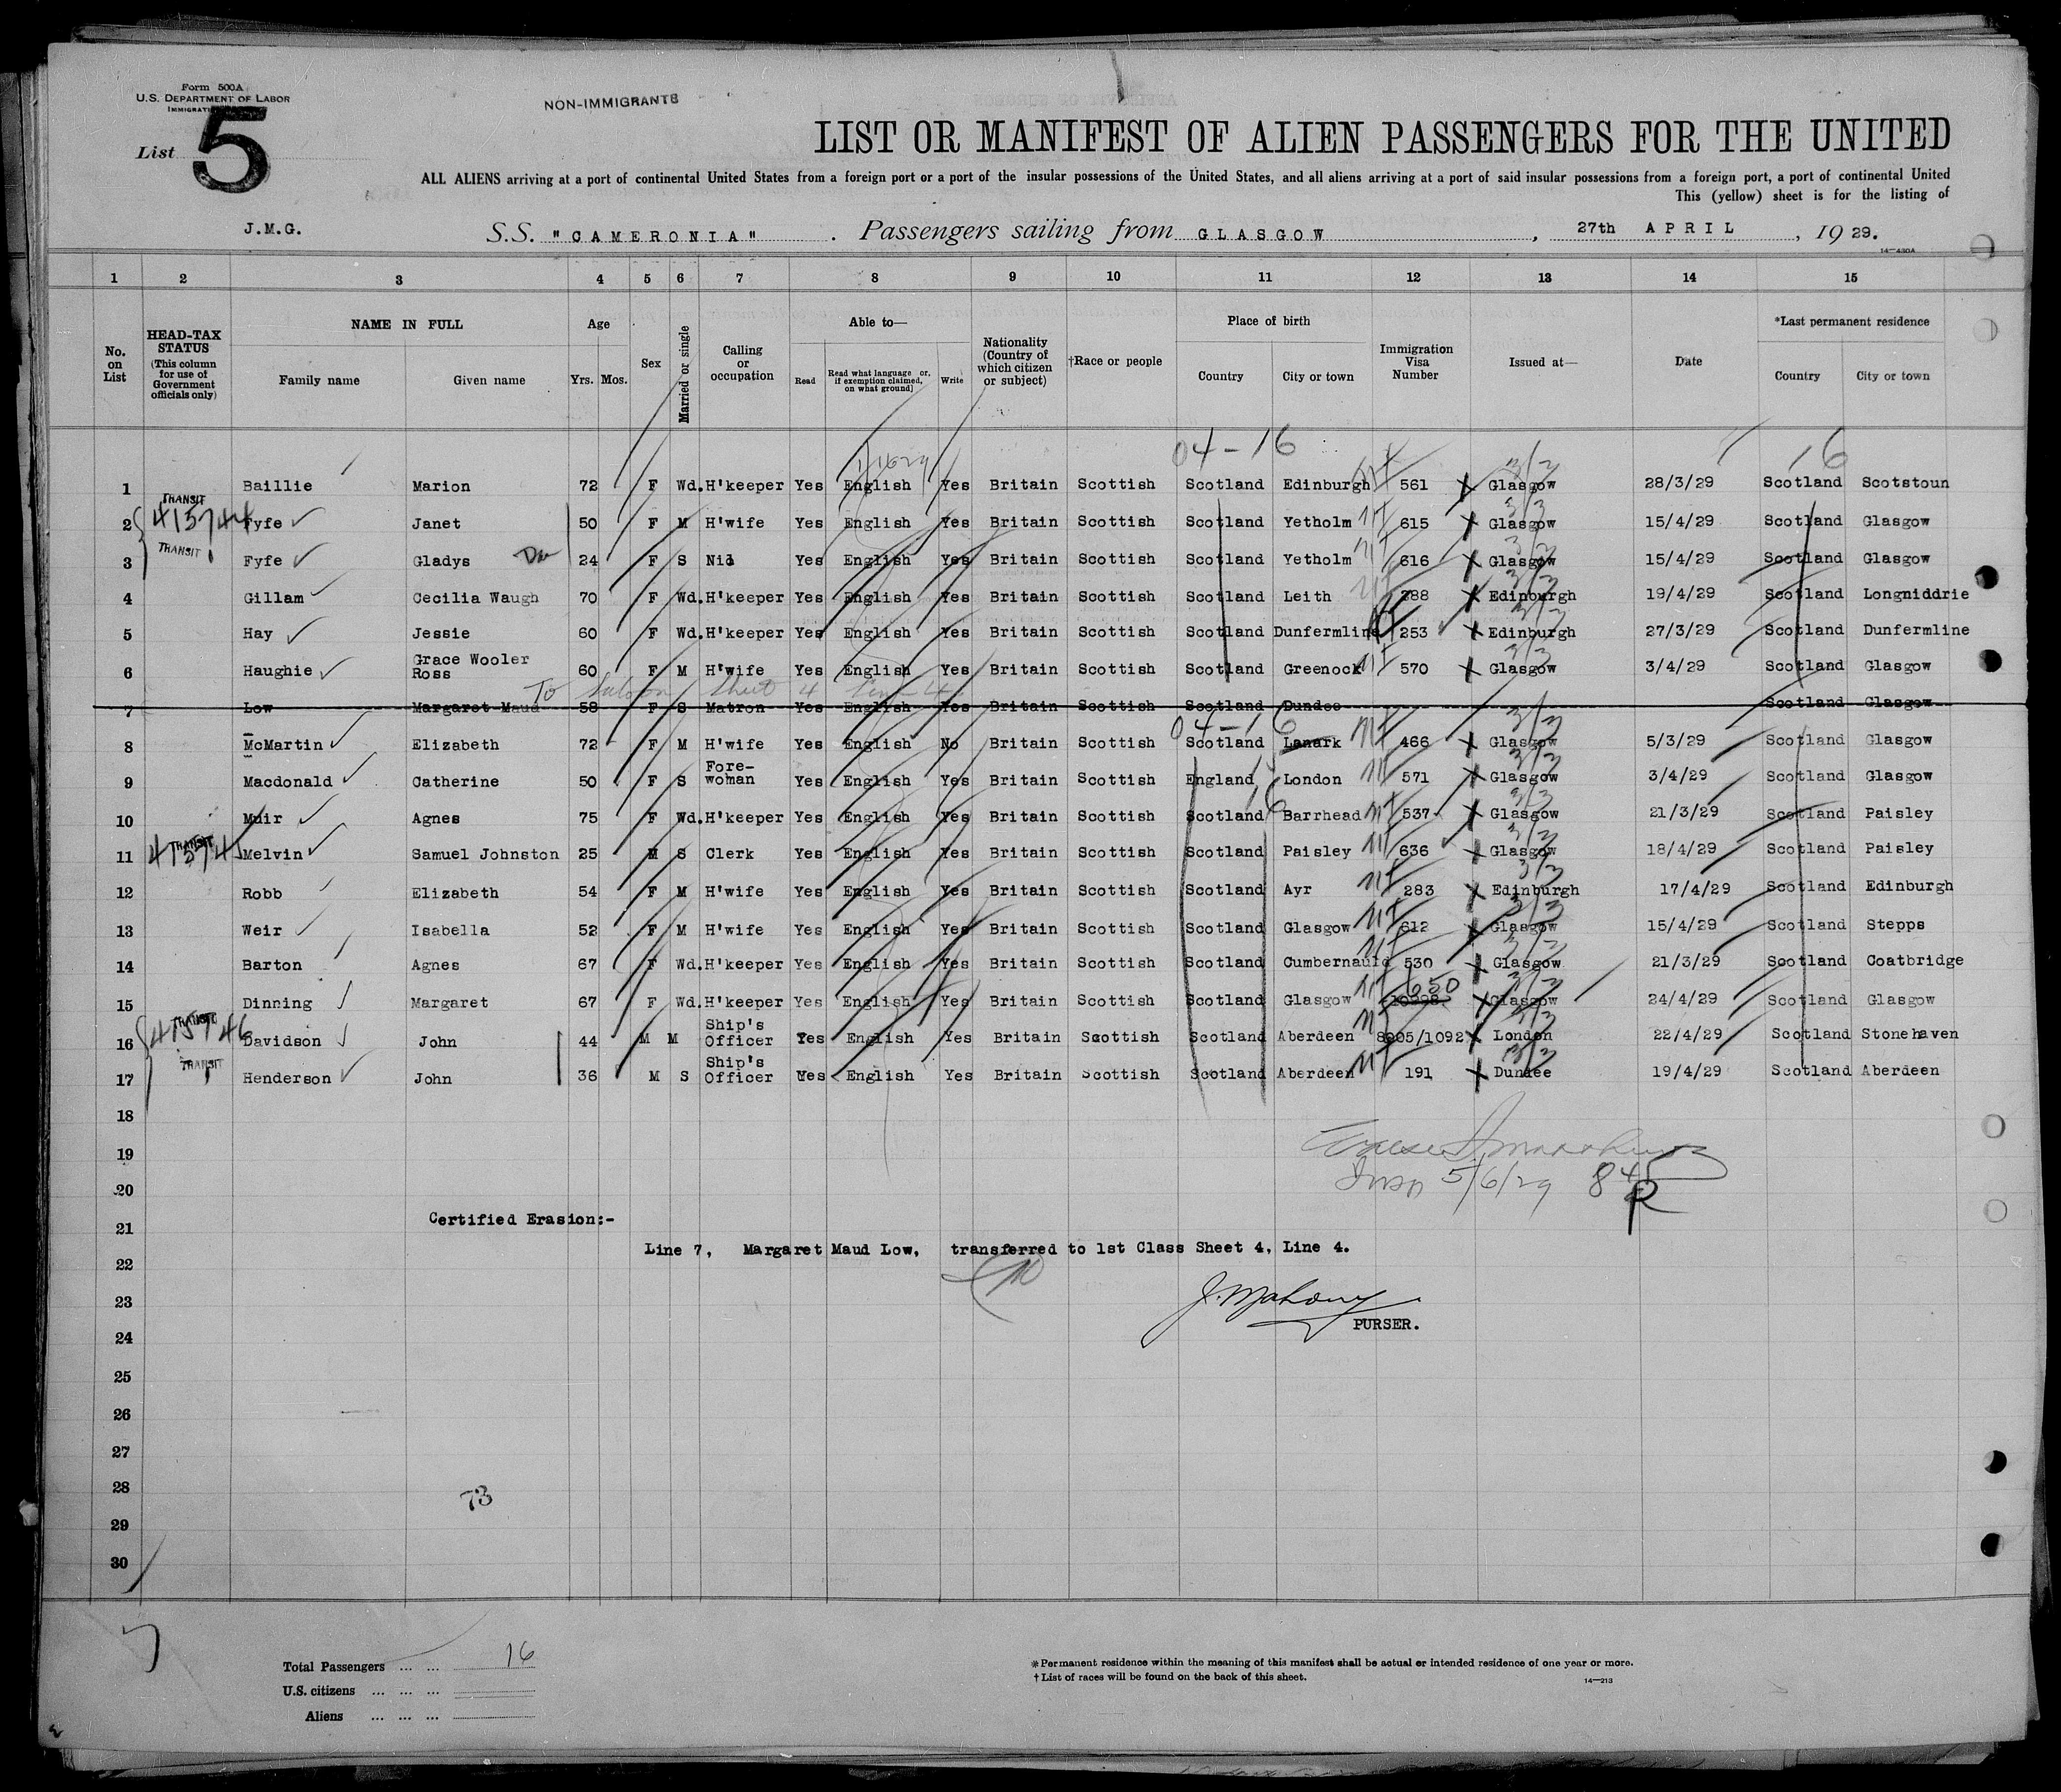 Form 500A
U.S. DEPARTMENT OF LABOR
NON-IMMIGRANTS
List 5
LIST OR MANIFEST OF ALIEN PASSENGERS FOR THE UNITED
ALL ALIENS arriving at a port of continental United States from a foreign port or a port of the insular possessions of the United States, and all aliens arriving at a port of said insular possessions from a foreign port, a port of continental United
This (yellow) sheet is for the listing of
J.M.G. S.S. "CAMERONIA". Passengers sailing from GLASGOW, 27th APRIL, 1929.
14—430A
1 2 3 4 5 6 7 8 9 10 11 12 13 14 15
No. on List
HEAD-TAX STATUS (This column for use of Government officials only)
NAME IN FULL Family name Given name
Age Yrs. Mos.
Sex
Married or single
Calling or occupation
Able to— Read Read what language or, if exemption claimed, on what ground] Write
Nationality (Country of which citizen or subject)
†Race or people
Place of birth Country City or town
Immigration Visa Number
Issued at—
Date
*Last permanent residence Country City or town
04-16 16
1 Baillie Marion 72 F Wd. H'keeper Yes English Yes Britain Scottish Scotland Edinburgh 561 Glasgow 28/3/29 Scotland Scotstoun
TRANSIT
2 415744 Fyfe Janet 50 F M H'wife Yes English Yes Britain Scottish Scotland Yetholm 615 Glasgow 15/4/29 Scotland Glasgow
TRANSIT
3 Fyfe Gladys Da 24 F S Nil Yes English Yes Britain Scottish Scotland Yetholm 616 Glasgow 15/4/29 Scotland Glasgow
4 Gillam Cecilia Waugh 70 F Wd. H'keeper Yes English Yes Britain Scottish Scotland Leith 288 Edinburgh 19/4/29 Scotland Longniddrie
5 Hay Jessie 60 F Wd. H'keeper Yes English Yes Britain Scottish Scotland Dunfermline 253 Edinburgh 27/3/29 Scotland Dunfermline
6 Haughie Grace Wooler Ross 60 F M H'wife Yes English Yes Britain Scottish Scotland Greenock 570 Glasgow 3/4/29 Scotland Glasgow
To Saloon Sheet 4 Line 4
7 Low Margaret Maud 58 F S Matron Yes English Yes Britain Scottish Scotland Dundee Scotland Glasgow
04-16
8 McMartin Elizabeth 72 F M H'wife Yes English No Britain Scottish Scotland Lanark 466 Glasgow 5/3/29 Scotland Glasgow
9 Macdonald Catherine 50 F S Fore-woman Yes English Yes Britain Scottish England London 571 Glasgow 3/4/29 Scotland Glasgow
10 Muir Agnes 75 F Wd. H'keeper Yes English Yes Britain Scottish Scotland Barrhead 537 Glasgow 21/3/29 Scotland Paisley
TRANSIT
11 Melvin Samuel Johnston 25 M S Clerk Yes English Yes Britain Scottish Scotland Paisley 636 Glasgow 18/4/29 Scotland Paisley
12 Robb Elizabeth 54 F M H'wife Yes English Yes Britain Scottish Scotland Ayr 283 Edinburgh 17/4/29 Scotland Edinburgh
13 Weir Isabella 52 F M H'wife Yes English Yes Britain Scottish Scotland Glasgow 612 Glasgow 15/4/29 Scotland Stepps
14 Barton Agnes 67 F Wd. H'keeper Yes English Yes Britain Scottish Scotland Cumbernauld 530 Glasgow 21/3/29 Scotland Coatbridge
15 Dinning Margaret 67 F Wd. H'keeper Yes English Yes Britain Scottish Scotland Glasgow 650 Glasgow 24/4/29 Scotland Glasgow
TRANSIT
16 415746 Davidson John 44 M M Ship's Officer Yes English Yes Britain Scottish Scotland Aberdeen 8905/1092 London 22/4/29 Scotland Stonehaven
TRANSIT
17 Henderson John 36 M S Ship's Officer Yes English Yes Britain Scottish Scotland Aberdeen 191 Dundee 19/4/29 Scotland Aberdeen
18
19
20 5/6/29
21 Certified Erasion:-
Line 7, Margaret Maud Low, transferred to 1st Class Sheet 4, Line 4.
22
23 J. Mahony
PURSER.
24
25
26
27
28 73
29
30
Total Passengers ... ... 16
U.S. citizens ... ... ...
Aliens ... ... ...
*Permanent residence within the meaning of this manifest shall be actual or intended residence of one year or more.
†List of races will be found on the back of this sheet.
14—213